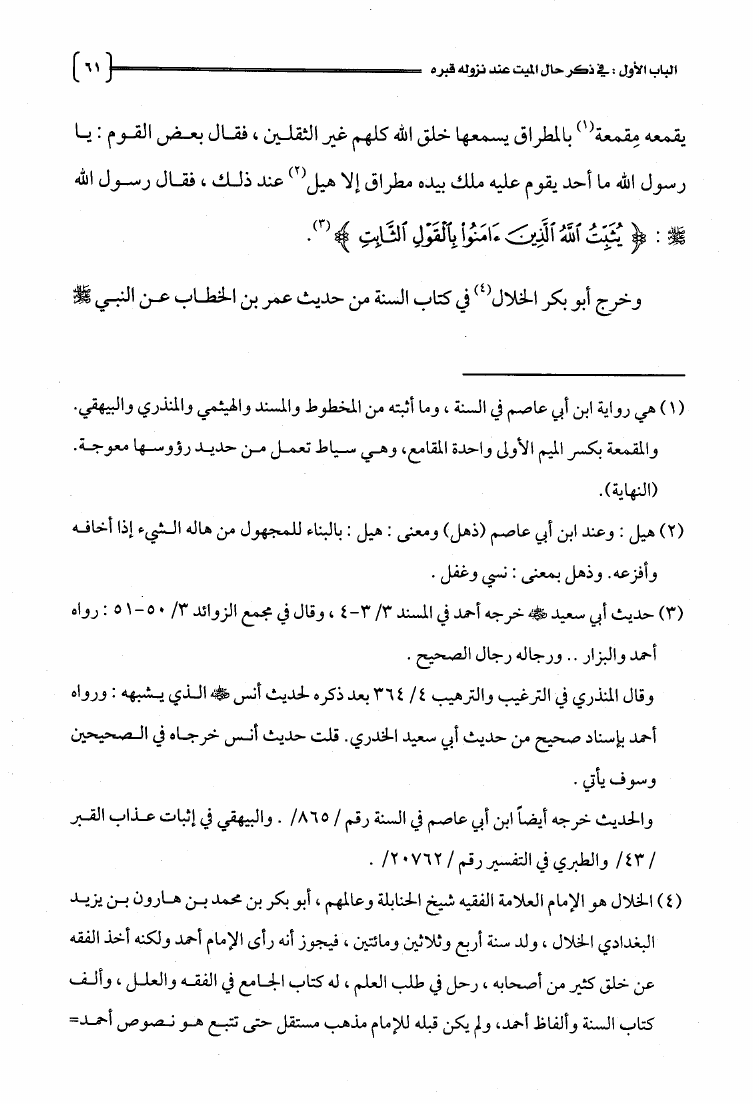 الباب الأول : في ذكر حال الميت عند نزوله قبره [٦١]
يقمعه مِقمعة(١) بالمطراق يسمعها خلق الله كلهم غير الثقلين ، فقال بعض القوم : يا
رسول الله ما أحد يقوم عليه ملك بيده مطراق إلا هيل(٢) عند ذلك ، فقال رسول الله
ﷺ : ﴿ يُثَبِّتُ ٱللَّهُ ٱلَّذِينَ ءَامَنُوا۟ بِٱلْقَوْلِ ٱلثَّابِتِ ﴾(٣).
وخرج أبو بكر الخلال(٤) في كتاب السنة من حديث عمر بن الخطاب عن النبي ﷺ
(١) هي رواية ابن أبي عاصم في السنة ، وما أثبته من المخطوط والمسند والهيثمي والمنذري والبيهقي.
والمقمعة بكسر الميم الأولى واحدة المقامع، وهي سياط تعمل من حديد رؤوسها معوجة.
(النهاية).
(٢) هيل : وعند ابن أبي عاصم (ذهل) ومعنى : هيل : بالبناء للمجهول من هاله الشيء إذا أخافه
وأفزعه. وذهل بمعنى : نسي وغفل .
(٣) حديث أبي سعيد ﷺ خرجه أحمد في المسند ٣/ ٣-٤ ، وقال في مجمع الزوائد ٣/ ٥٠-٥١ : رواه
أحمد والبزار .. ورجاله رجال الصحيح .
وقال المنذري في الترغيب والترهيب ٤/ ٣٦٤ بعد ذكره لحديث أنس ﷺ الذي يشبهه : ورواه
أحمد بإسناد صحيح من حديث أبي سعيد الخدري. قلت حديث أنس خرجاه في الصحيحين
وسوف يأتي .
والحديث خرجه أيضاً ابن أبي عاصم في السنة رقم / ٨٦٥/ . والبيهقي في إثبات عذاب القبر
/ ٤٣/ والطبري في التفسير رقم / ٢٠٧٦٢/ .
(٤) الخلال هو الإمام العلامة الفقيه شيخ الحنابلة وعالمهم ، أبو بكر بن محمد بن هارون بن يزيد
البغدادي الخلال ، ولد سنة أربع وثلاثين ومائتين ، فيجوز أنه رأى الإمام أحمد ولكنه أخذ الفقه
عن خلق كثير من أصحابه ، رحل في طلب العلم ، له كتاب الجامع في الفقه والعلل ، وألف
كتاب السنة وألفاظ أحمد، ولم يكن قبله للإمام مذهب مستقل حتى تتبع هو نصوص أحمد=